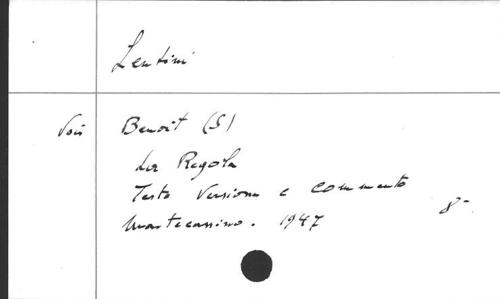 Lentini
Voir Benoit (S)
La Regola
Testo Versione e commento
Montecassino. 1947 8-